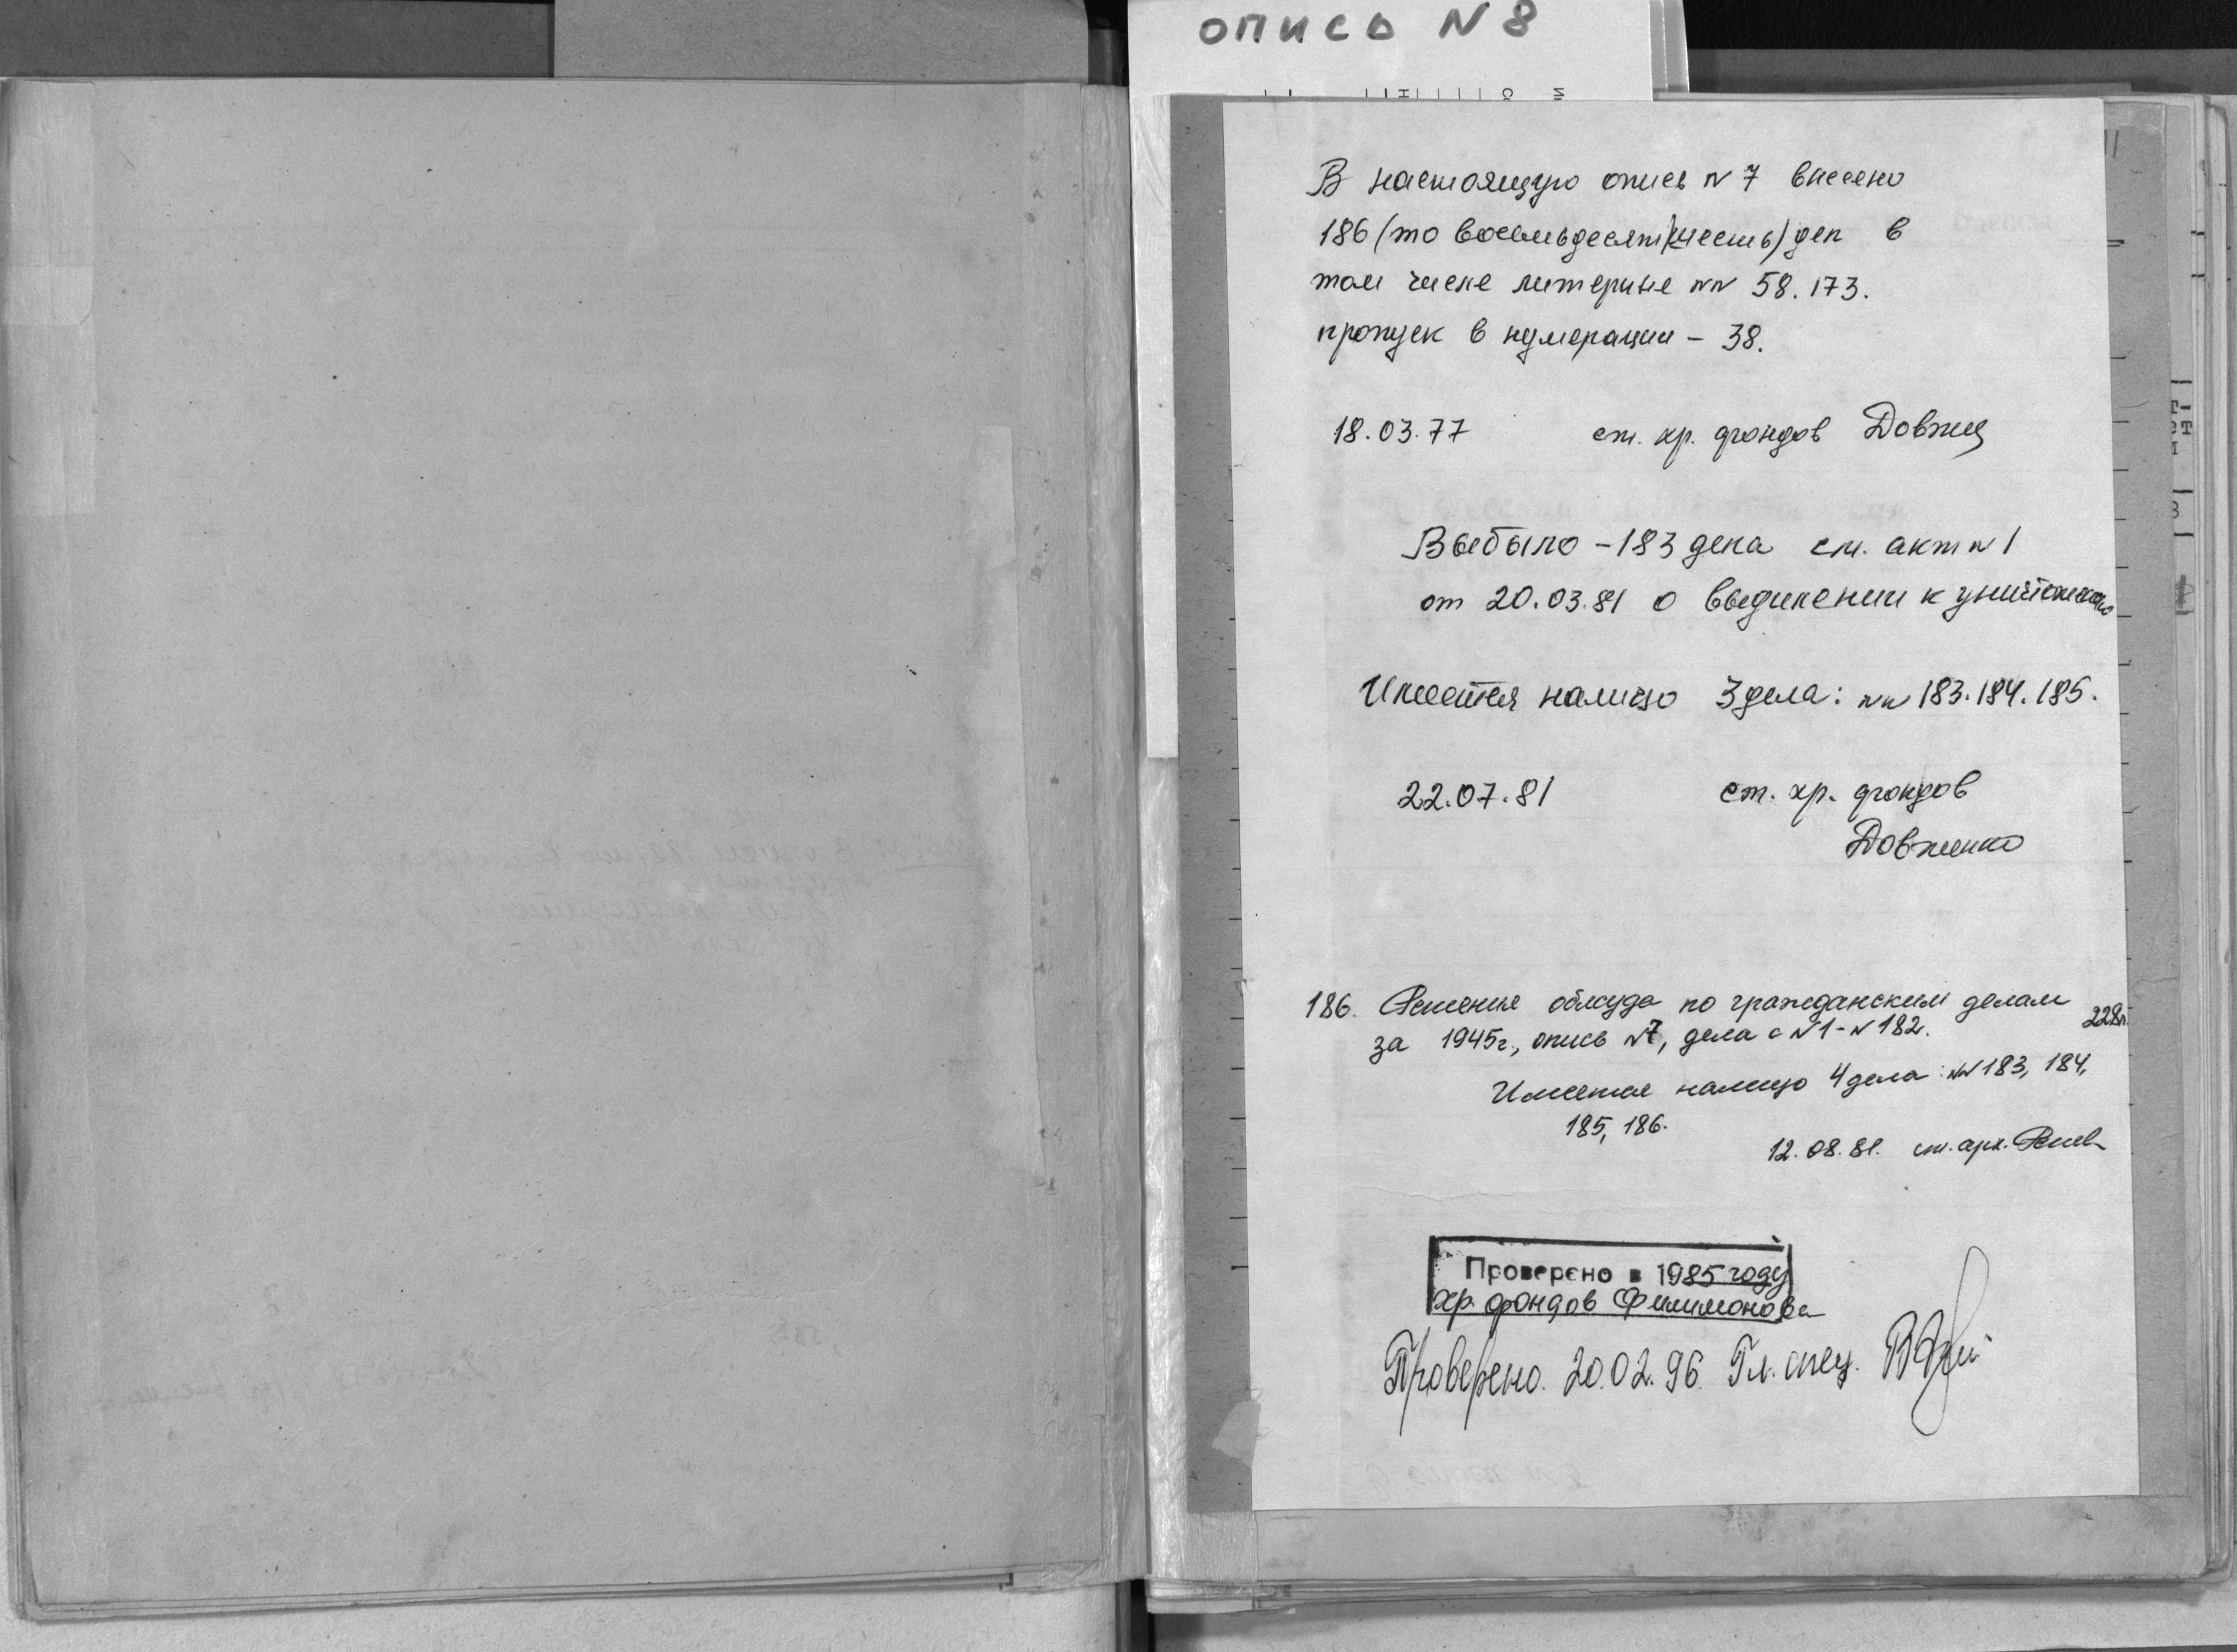 опись N 8
В настоящую опись N 7 внесено
186 (сто восемьдесят шесть) дел в
том числе литерные NN 58. 173.
пропуск в нумерации – 38.
18.03.77 ст. хр. фондов
Выбыло – 183 дела см. акт N 1
от 20.03.81 о выделении к уничтожению
Имеется налицо 3 дела: NN 183. 184. 185.
22.07.81 ст. хр. фондов
Довженко
186. Решения облсуда по гражданским делам
за 1945г., опись N7, дела с N1 - N 182. 228л.
Имеется налицо 4 дела: NN 183, 184,
185, 186.
12.08.81. ст. арх.
Проверено в 1985 году
хр. фондов Филимонова
Проверено. 20.02.96 Гл. спец.